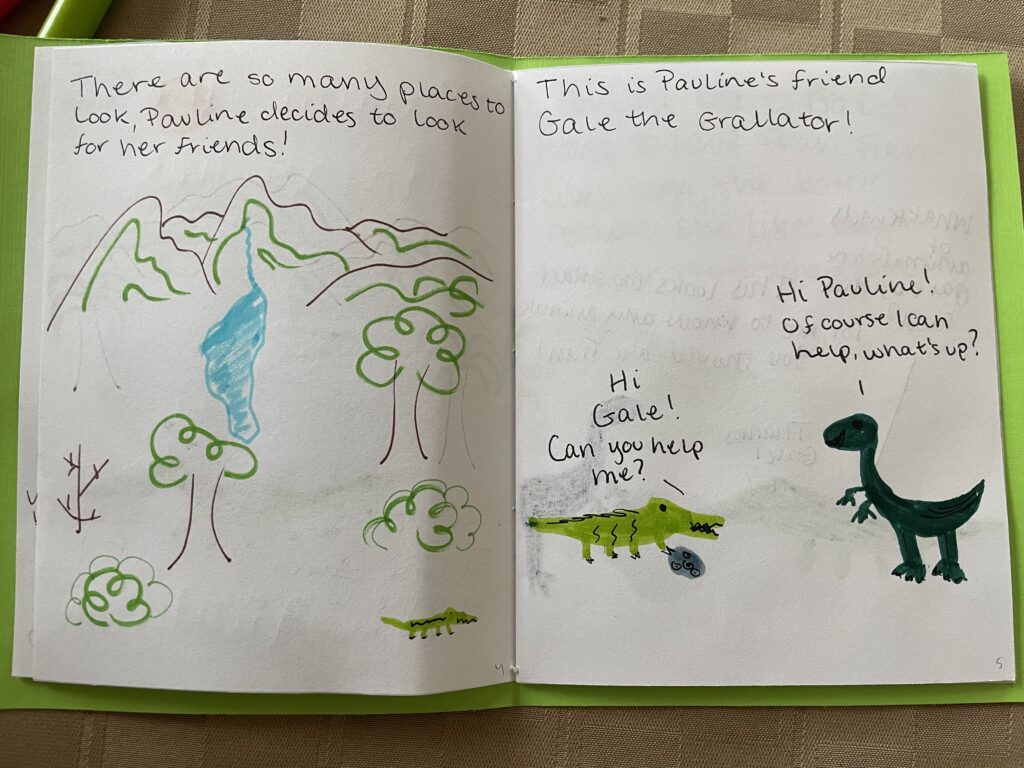 There are so many places to
look, Pauline decides to look
for her friends!
4
This is Pauline's friend
Gale the Grallator!
Hi Pauline!
Of course I can
help, what's up?
Hi
Gale!
Can you help
me?
5